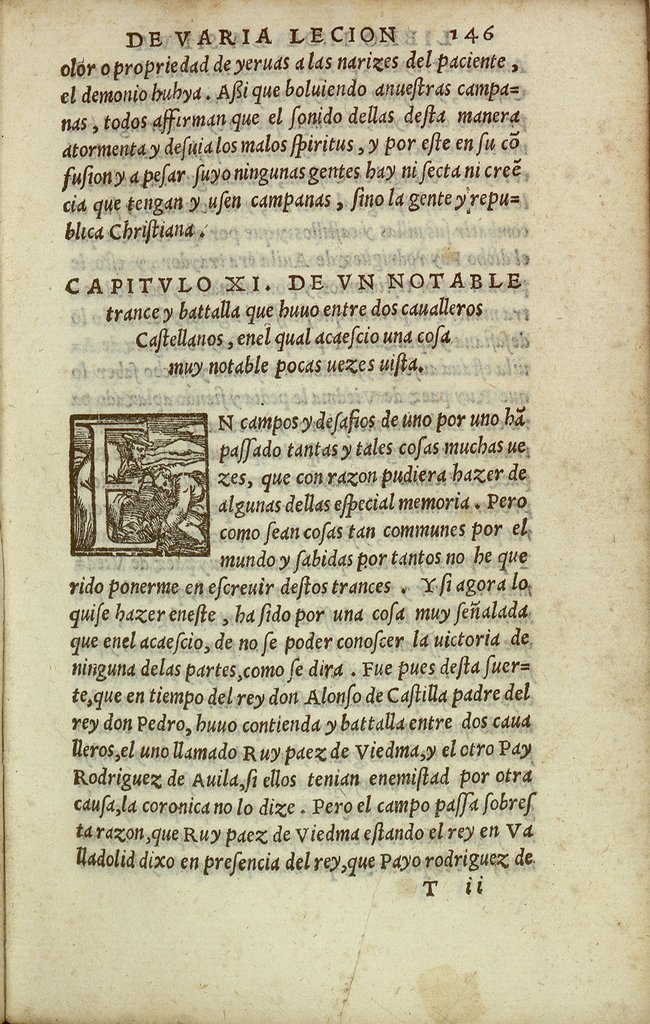 DE VARIA LECION 146
olor o propriedad de yeruas a las narizes del paciente,
el demonio huhya. Aßi que boluiendo anueſtras campa=
nas, todos affirman que el ſonido dellas deſta manera
atormenta y deſuia los malos ſpiritus, y por eſte en ſu cõ
fuſion y a peſar ſuyo ningunas gentes hay ni ſecta ni creẽ
cia que tengan y uſen campanas, ſino la gente y repu=
blica Chriſtiana.
CAPITVLO XI. DE VN NOTABLE
trance y battalla que huuo entre dos caualleros
Caſtellanos, enel qual acaeſcio una coſa
muy notable pocas uezes uiſta.
EN campos y deſafios de uno por uno hã
paſſado tantas y tales coſas muchas ue
zes, que con razon pudiera hazer de
algunas dellas eſpecial memoria. Pero
como ſean coſas tan communes por el
mundo y ſabidas por tantos no he que
rido ponerme en eſcreuir deſtos trances. Y ſi agora lo
quiſe hazer eneſte, ha ſido por una coſa muy ſeñalada
que enel acaeſcio, de no ſe poder conoſcer la uictoria de
ninguna delas partes, como ſe dira. Fue pues deſta ſuer=
te, que en tiempo del rey don Alonſo de Caſtilla padre del
rey don Pedro, huuo contienda y battalla entre dos caua
lleros, el uno llamado Ruy paez de Viedma, y el otro Pay
Rodriguez de Auila, ſi ellos tenian enemiſtad por otra
cauſa, la coronica no lo dize. Pero el campo paſſa ſobreſ
ta razon, que Ruy paez de Viedma eſtando el rey en Va
lladolid dixo en preſencia del rey, que Payo rodriguez de
T ii